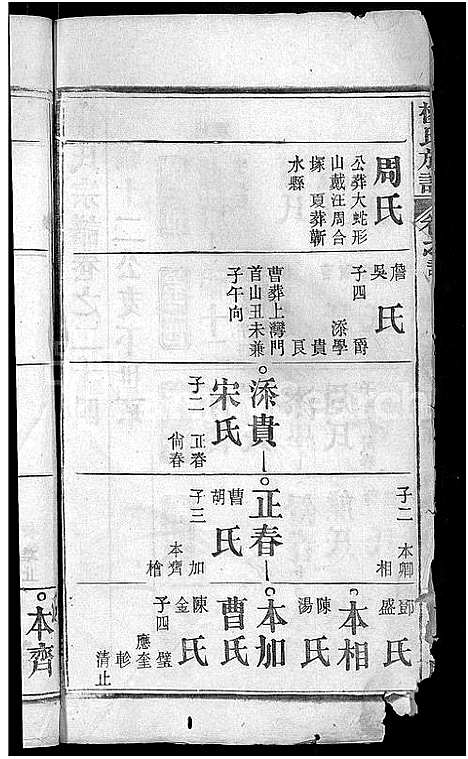 周氏
公葬大蛇形
山戴汪周合
塚夏葬蘄
水縣
詹吳氏
子四
爵
添學
貴
良
曹葬上灣門
首山丑未兼
子午向
添貴
宋氏
子二
正春
尙春
子二
本卿
相
正春
曹胡氏
子三
加
本齊
檜
鄧盛氏
本相
陳湯氏
本加
曹氏
陳金氏
子四
璧
應奎
軫
清止
本齊